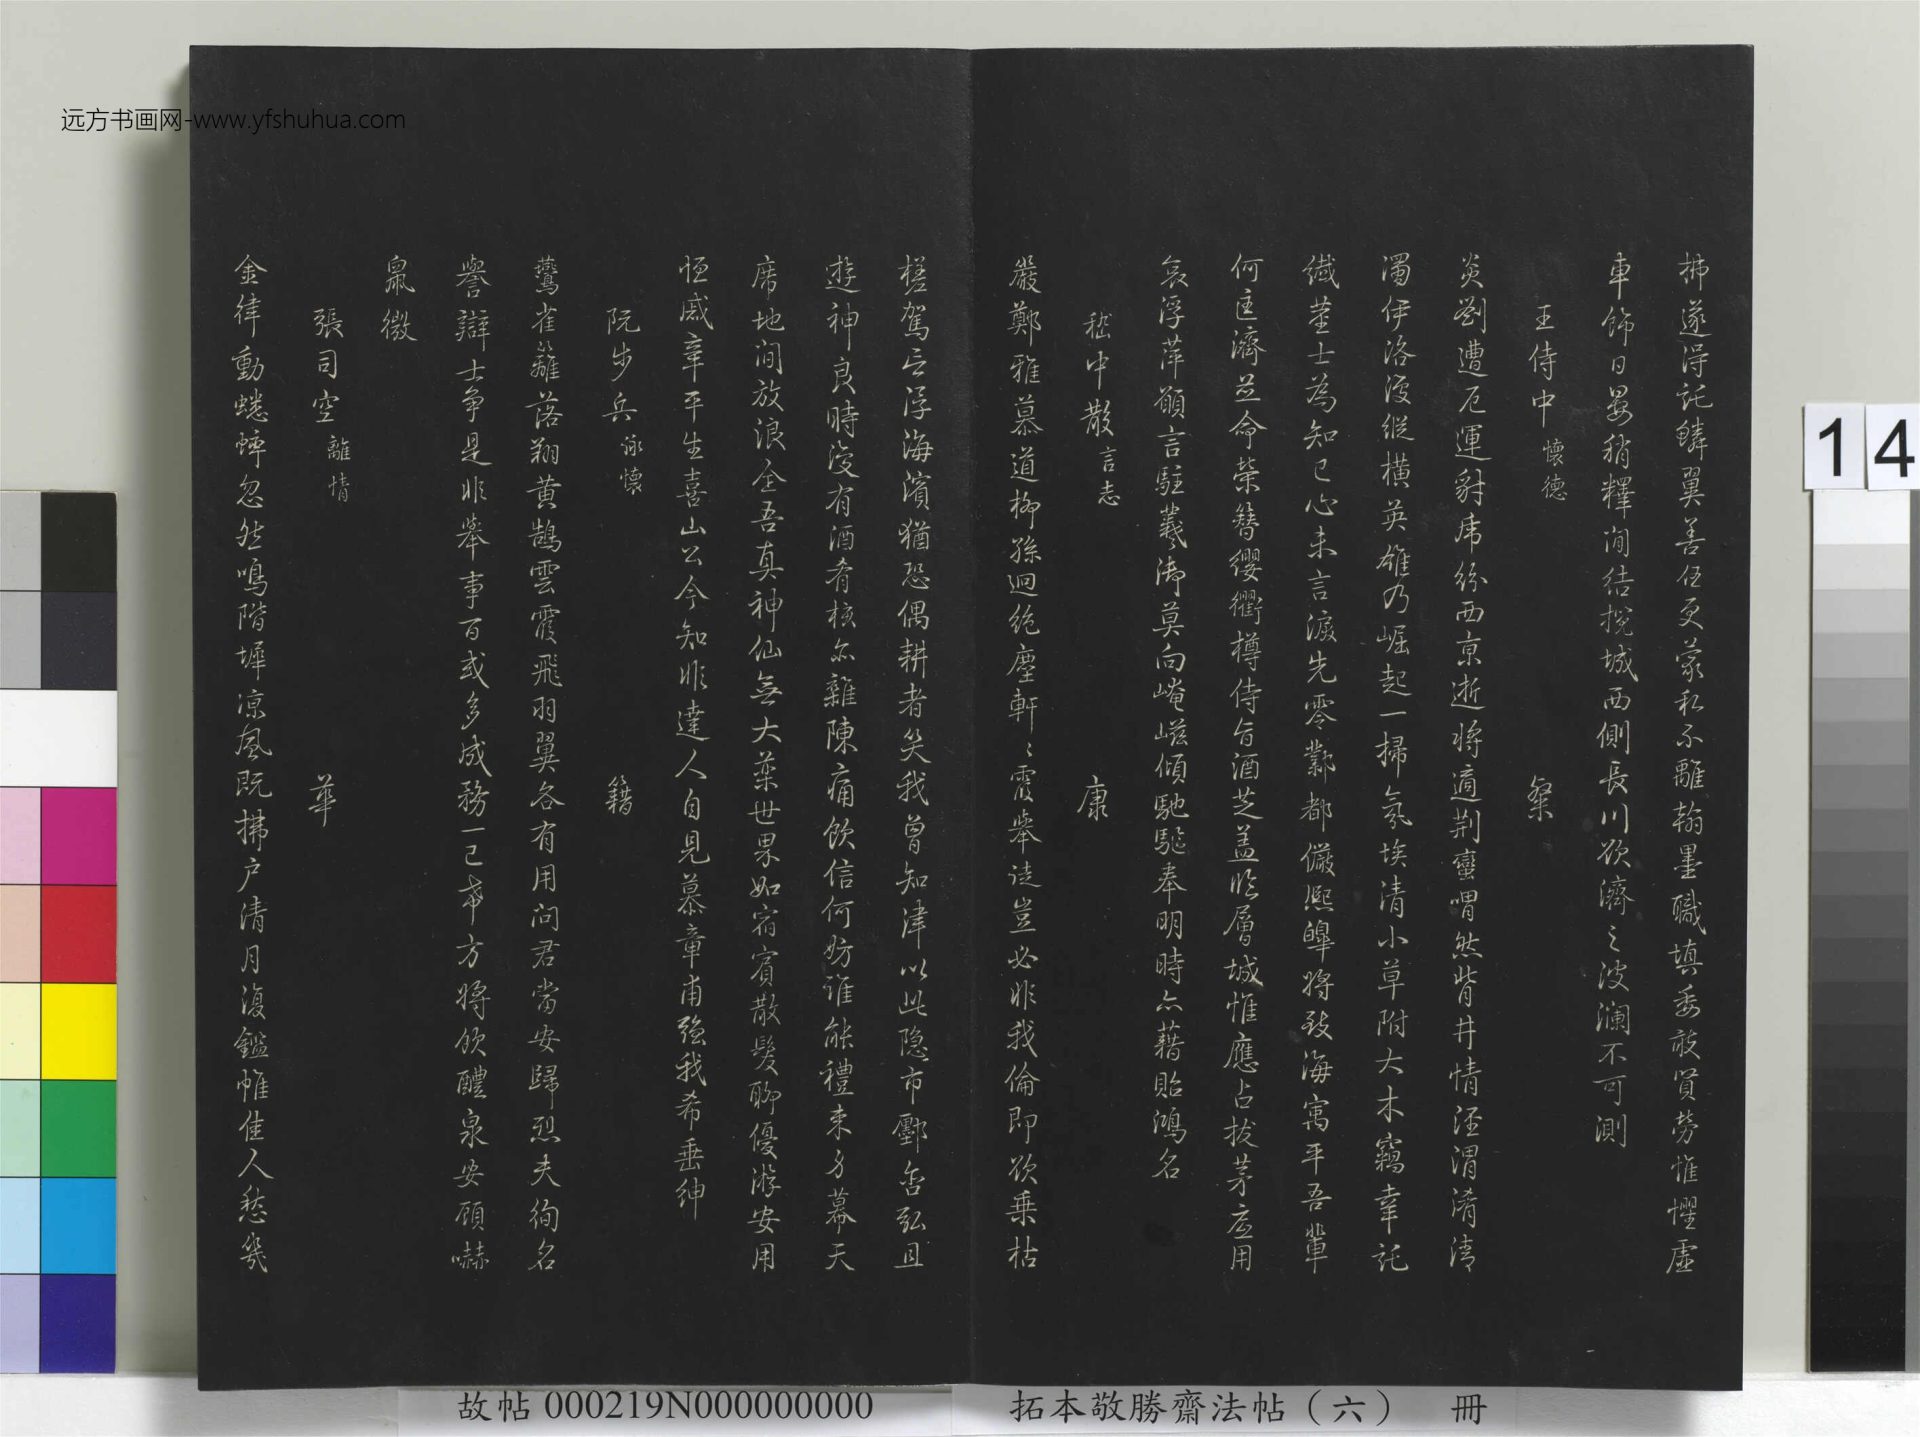 拂遂得託鱗翼善任更蒙私不離翰墨職填委敢貿勞惟懼虛
車飾日晏稍釋閒結挽城西側長川欲濟之波瀾不可測
王侍中 懷德 粲
炎劉遭厄運豺虎紛西京逝將適荆蠻喟然背井情涇渭淆清
濁伊洛復縱橫英雄乃崛起一掃氛埃清小草附大木竊幸託
纖莖士為知己心未言淚先零鄴都儼熙皞將致海寓平吾輩
何匡濟並命榮簪纓衢樽侍旨酒芝蓋臨層城惟應占拔茅庶用
哀浮萍願言駐羲御莫向崦嵫傾馳驅奉明時亦藉貽鴻名
嵇中散 言志 康
嚴鄭雅慕道柳孫迥絶塵軒軒霞舉徒豈必非我倫即欲乗枯
槎駕言浮海濱猶恐偶耕者笑我曾知津以此隐市酆舍弘且
遊神良時復有酒肴核亦雜陳痛飲信何妨誰能禮来方幕天
席地閒放浪全吾真神仙無大藥世果如宿賓散髪聊優游安用
恒戚辛平生喜山公今知非達人自見慕章甫強我希垂紳
阮步兵 詠懷 籍
鷽雀籬落翔黄鵠雲霞飛羽翼各有用问君當安歸烈夫徇名
譽辯士争是非舉事百或多成務一已希方將飲醴泉安顾嚇
鼠微
張司空 離情 華
金律動蟋蟀忽然鳴階墀凉風既拂户清月復鑑帷佳人愁幾
远方书画网-www.yfshuhua.com
14
故帖 000219N000000000
拓本敬勝齋法帖（六） 冊